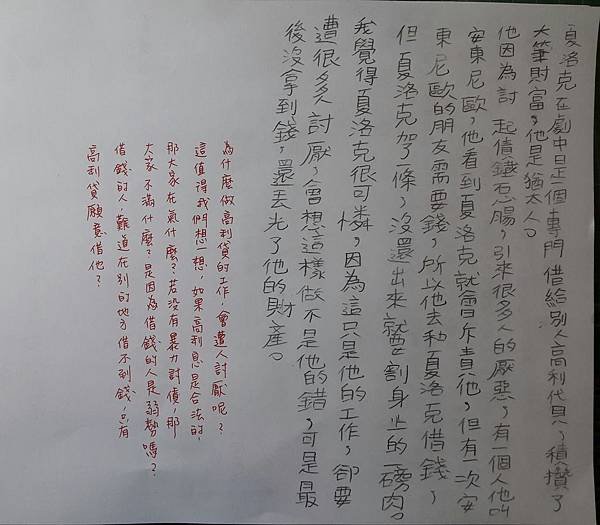 夏洛克在劇中是一個專門借給別人高利代貝，積攢了
大筆財富，他是猶太人。
他因為討起債鐵石心腸，引來很多人的厭惡，有一個人他叫
安東尼歐，他看到夏洛克就會斥責他，但有一次安
東尼歐的朋友需要錢，所以他去和夏洛克借錢，
但夏洛克加了條，沒還出來就要割身上的一磅肉。
我覺得夏洛克很可憐，因為這只是他的工作，卻要
遭很多人討厭，會想這樣做不是他的錯，可是最
後沒拿到錢，還丟光了他的財產。
為什麼做高利貸的工作，會遭人討厭呢？
這值得我們想一想，如果高利息是合法的，
那大家在氣什麼？若沒有暴力討債，那
大家不滿什麼？是因為借錢的人是弱勢嗎？
借錢的人，難道在別的地方借不到錢，只有
高利貸願意借他？